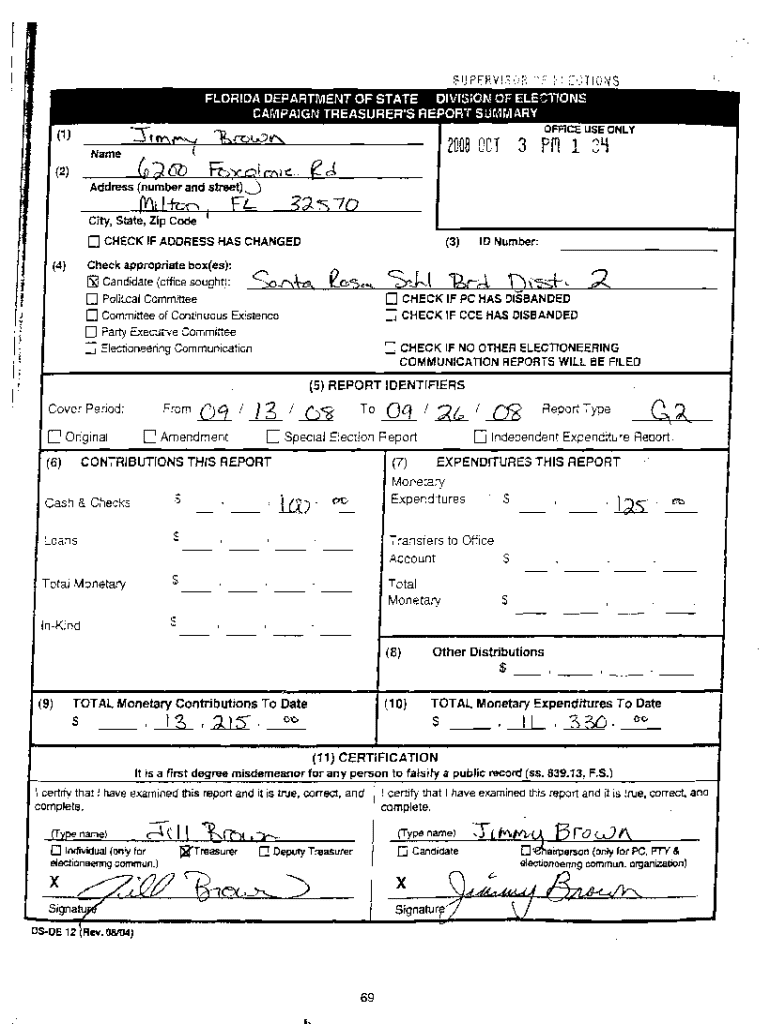 SUPERVISOR OF ELECTIONS
FLORIDA DEPARTMENT OF STATE DIVISION OF ELECTIONS
CAMPAIGN TREASURER'S REPORT SUMMARY
(1) Jimmy Brown
Name
OFFICE USE ONLY
2008 OCT 3 PM 1 34
(2) 6200 Rd
Address (number and street)
Milton, FL 32570
City, State, Zip Code
CHECK IF ADDRESS HAS CHANGED
(3) ID Number:
(4) Check appropriate box(es):
Candidate (office sought): Santa Rosa Schl Brd Dist. 2
Political Committee
CHECK IF PC HAS DISBANDED
Committee of Continuous Existence
CHECK IF CCE HAS DISBANDED
Party Executive Committee
Electioneering Communication
CHECK IF NO OTHER ELECTIONEERING
COMMUNICATION REPORTS WILL BE FILED
(5) REPORT IDENTIFIERS
Cover Period: From 09 / 13 / 08 To 09 / 26 / 08 Report Type G2
Original Amendment Special Election Report Independent Expenditure Report
(6) CONTRIBUTIONS THIS REPORT
Cash & Checks $ 100 . 00
Loans $
Total Monetary $
In-Kind $
(7) EXPENDITURES THIS REPORT
Monetary
Expenditures $ 125 . 00
Transfers to Office
Account $
Total
Monetary $
(8) Other Distributions
$
(9) TOTAL Monetary Contributions To Date
$ 13 , 215 . 00
(10) TOTAL Monetary Expenditures To Date
$ 11 , 330 . 00
(11) CERTIFICATION
It is a first degree misdemeanor for any person to falsify a public record (ss. 839.13, F.S.)
I certify that I have examined this report and it is true, correct, and
complete.
(Type name) Jill Brown
Individual (only for
electioneering commun.)
Treasurer Deputy Treasurer
X Jill Brown
Signature
I certify that I have examined this report and it is true, correct, and
complete.
(Type name) Jimmy Brown
Candidate
Chairperson (only for PC, PTY &
electioneering commun. organization)
X Jimmy Brown
Signature
DS-DE 12 (Rev. 08/04)
69